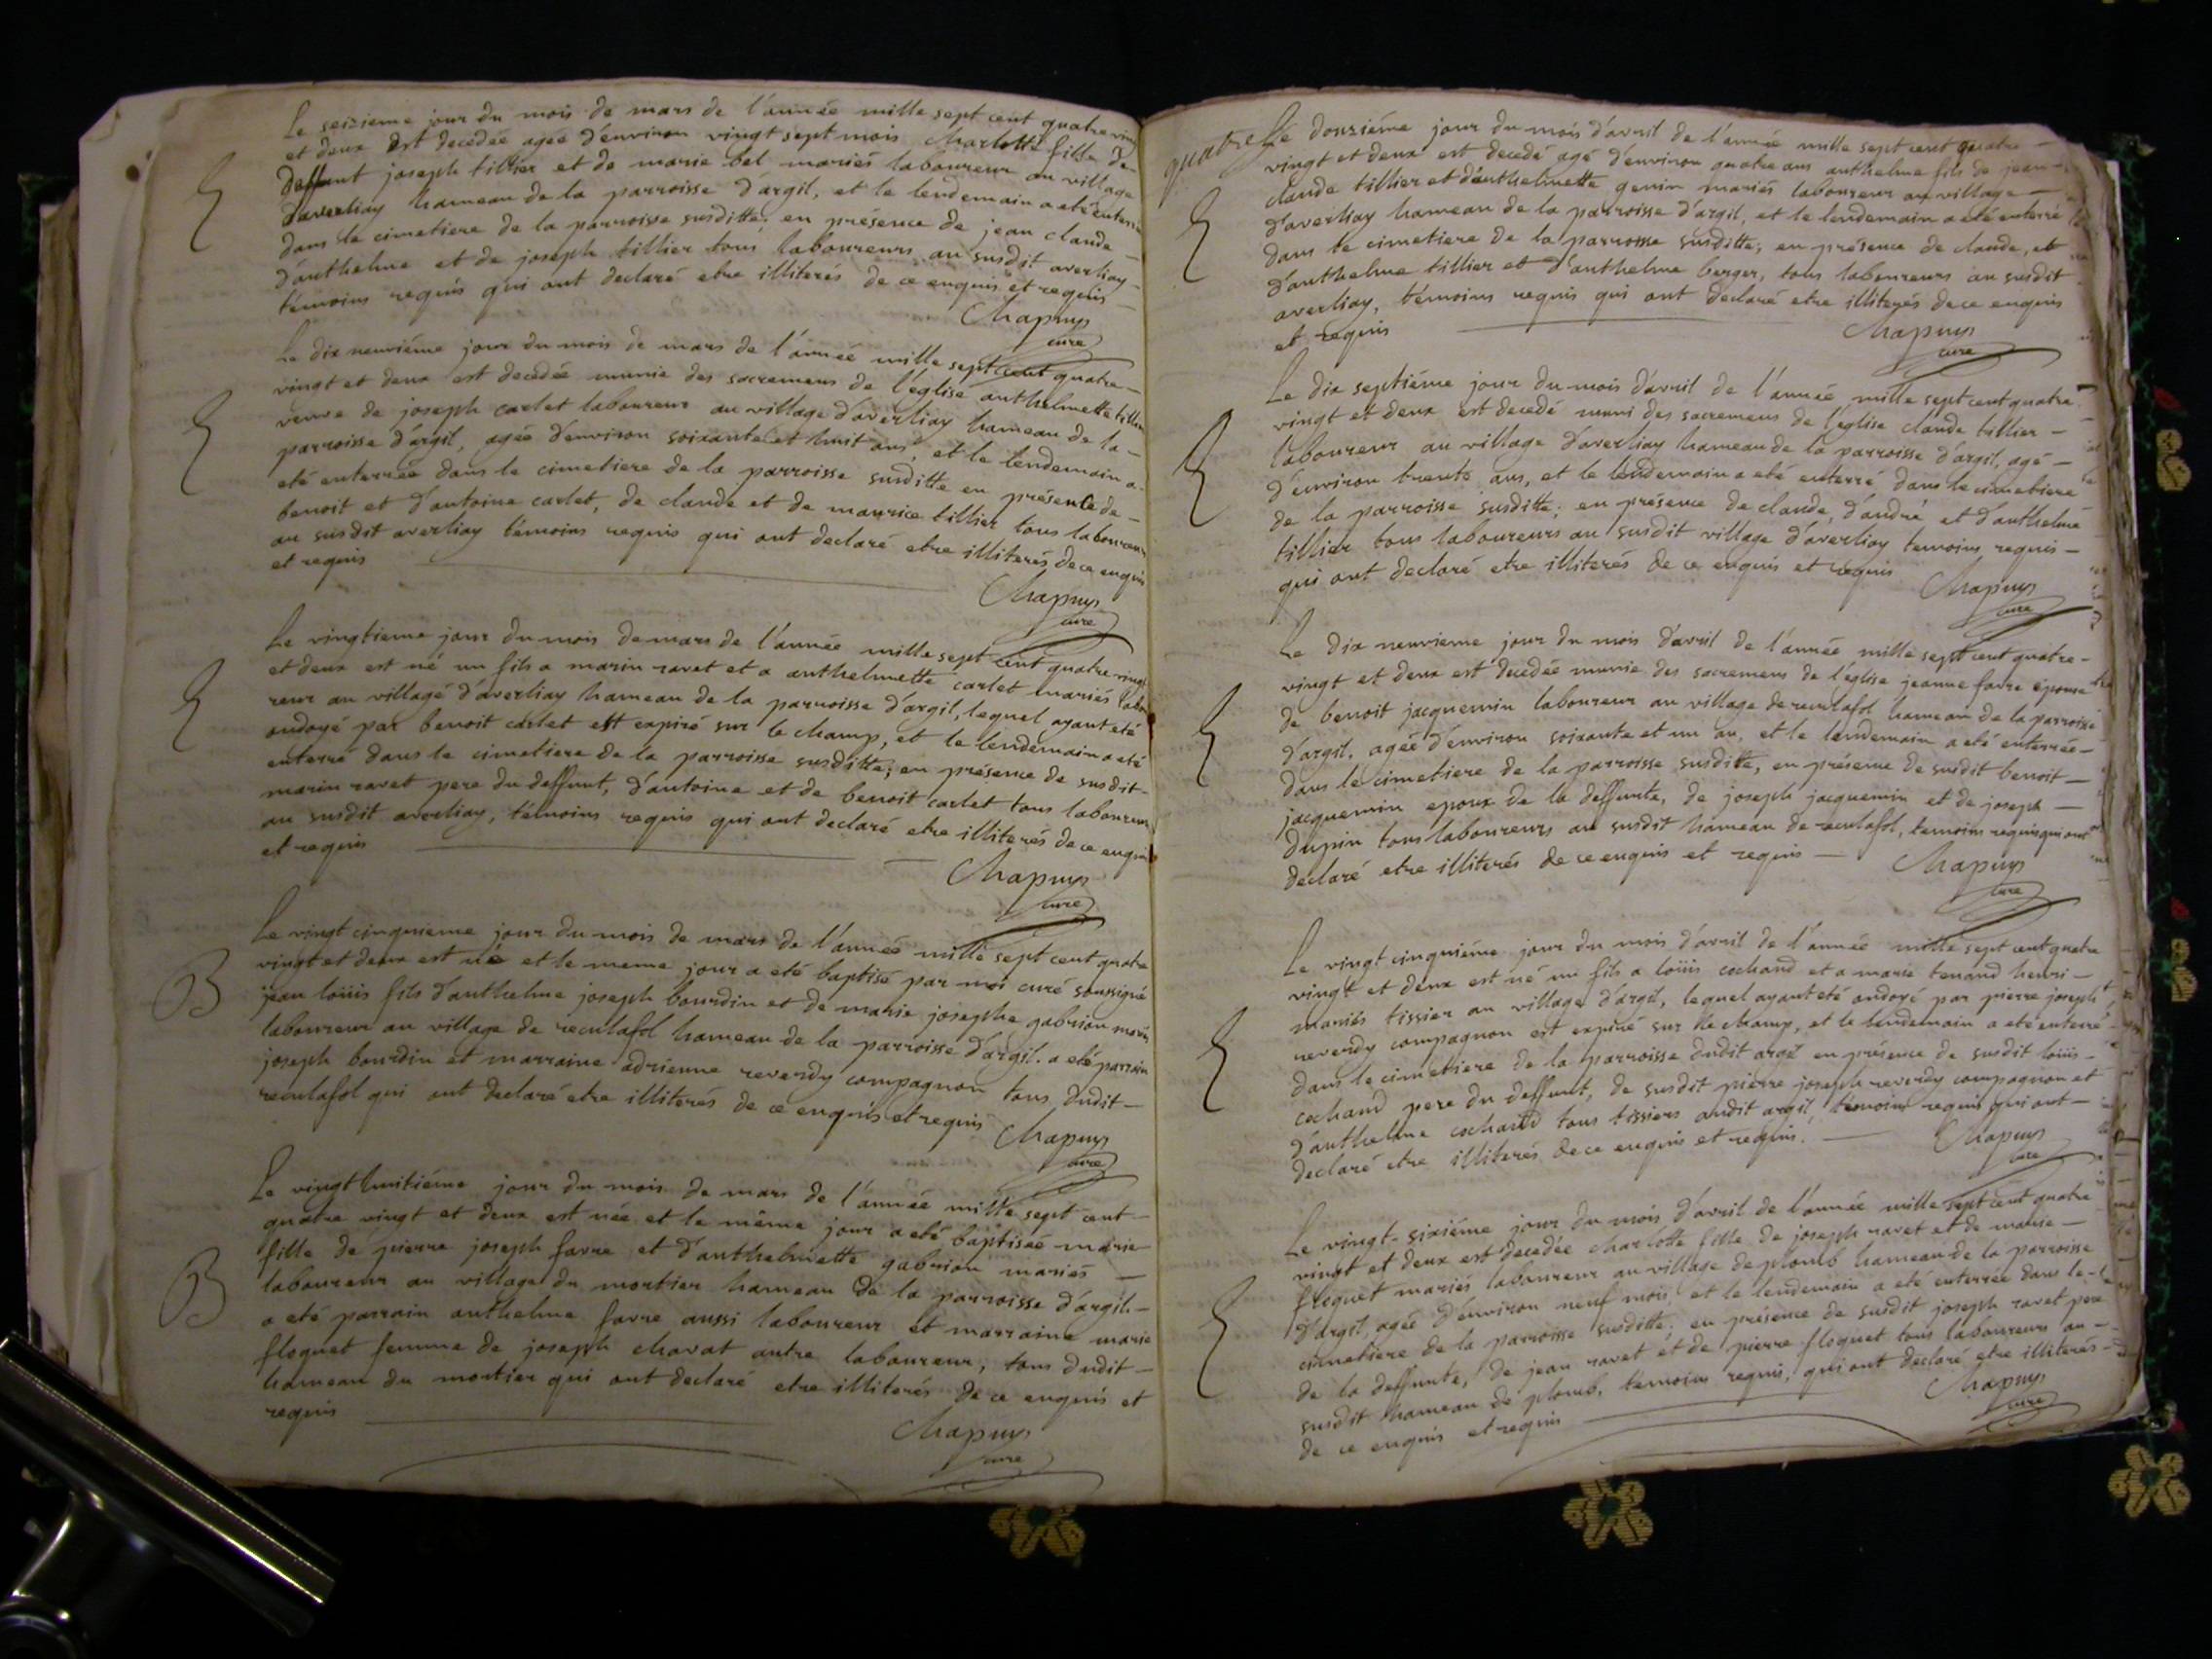 Le seizieme jour du mois de mars de l'année mille sept cent quatre vingt
et deux est decedée agée d'environ vingt sept mois Charlotte fille de
deffunt joseph tillier et de marie bel mariés laboureur au village
d'averliay hameau de la parroisse d'argil, et le lendemain a eté enterrée
dans le cimetiere de la parroisse susditte; en présence de jean claude
d'anthelme et de joseph tillier tous laboureurs au susdit averliay
témoins requis qui ont declaré etre illiterés de ce enquis et requis
Chapuys
curé
Le dix neuviéme jour du mois de mars de l'année mille sept cent quatre
vingt et deux est decedée munie des sacremens de l'église anthelmette tillier
veuve de joseph carlet laboureur au village d'averliay hameau de la
parroisse d'argil, agée d'environ soixante et huit ans, et le lendemain a
eté enterrée dans le cimetiere de la parroisse susditte en présence de
benoit et d'antoine carlet, de claude et de maurice tillier tous laboureurs
au susdit averliay témoins requis qui ont declaré etre illiterés de ce enquis
et requis
Chapuys
curé
Le vingtieme jour du mois de mars de l'année mille sept cent quatre vingt
et deux est né un fils a marin ravet et a anthelmette carlet mariés labou
reur au village d'averliay hameau de la parroisse d'argil, lequel ayant eté
ondoyé par benoit carlet est expiré sur le champ, et le lendemain a eté
enterré dans le cimetiere de la parroisse susditte; en présence de susdit
marin ravet pere du deffunt, d'antoine et de benoit carlet tous laboureurs
au susdit averliay, témoins requis qui ont declaré etre illiterés de ce enquis
et requis
Chapuys
curé
B
Le vingt cinquieme jour du mois de mars de l'année mille sept cent quatre
vingt et deux est né et le meme jour a eté baptisé par moi curé soussigné
jean loüis fils d'anthelme joseph bourdin et de marie josephe gabrion mariés
laboureur au village de reculafol hameau de la parroisse d'argil. a eté parrain
joseph bourdin et marraine adrienne reverdy compagnon tous dudit
reculafol qui ont declaré etre illiterés de ce enquis et requis
Chapuys
curé
B
Le vingt huitiéme jour du mois de mars de l'année mille sept cent
quatre vingt et deux est née et le même jour a eté baptisée marie
fille de pierre joseph favre et d'anthelmette gabrion mariés
laboureur au village du mortier hameau de la parroisse d'argil
a eté parrain anthelme favre aussi laboureur et marraine marie
floquet femme de joseph chavat autre laboureur, tous dudit
hameau du mortier qui ont declaré etre illiterés de ce enquis et
requis
Chapuys
curé
quatre
Le douziéme jour du mois d'avril de l'année mille sept cent quatre
vingt et deux est decedé agé d'environ quatre ans anthelme fils de jean
claude tillier et d'anthelmette genin mariés laboureur au village
d'averliay hameau de la parroisse d'argil, et le lendemain a eté enterré
dans le cimetiere de la parroisse susditte; en présence de claude, et
d'anthelme tillier et d'anthelme berger, tous laboureurs au susdit
averliay, témoins requis qui ont declaré etre illiterés de ce enquis
et requis
Chapuys
curé
Le dix septiéme jour du mois d'avril de l'année mille sept cent quatre
vingt et deux est decedé muni des sacremens de l'église claude tillier
laboureur au village d'averliay hameau de la parroisse d'argil, agé
d'environ trente ans, et le lendemain a eté enterré dans le cimetiere
de la parroisse susditte; en présence de claude, d'andré et d'anthelme
tillier tous laboureurs au susdit village d'averliay temoins requis
qui ont declaré etre illiterés de ce enquis et requis
Chapuys
curé
Le dix neuvieme jour du mois d'avril de l'année mille sept cent quatre
vingt et deux est decedée munie des sacremens de l'église jeanne favre epouse
de benoit jacquemin laboureur au village de reculafol hameau de la parroisse
d'argil, agée d'environ soixante et un an, et le lendemain a eté enterrée
dans le cimetiere de la parroisse susditte, en présence de susdit benoit
jacquemin epoux de la deffunte, de joseph jacquemin et de joseph
dupin tous laboureurs au susdit hameau de reculafol, temoins requis qui ont
declaré etre illiterés de ce enquis et requis
Chapuys
curé
Le vingt cinquiéme jour du mois d'avril de l'année mille sept cent quatre
vingt et deux est né un fils a loüis cochand et a marie tenand
mariés tissier au village d'argil, lequel ayant eté ondoyé par pierre joseph
reverdy compagnon est expiré sur le champ, et le lendemain a eté enterré
dans le cimetiere de la parroisse dudit argil en présence de susdit loüis
cochand pere du deffunt, de susdit pierre joseph reverdy compagnon et
d'anthelme cochand tous tissiers audit argil, témoins requis qui ont
declaré etre illiterés de ce enquis et requis.
Chapuys
curé
Le vingt-sixiéme jour du mois d'avril de l'année mille sept cent quatre
vingt et deux est decedée charlotte fille de joseph ravet et de marie
floquet mariés laboureur au village de plomb hameau de la parroisse
d'argil, agée d'environ neuf mois, et le lendemain a eté enterrée dans le
cimetiere de la parroisse susditte; en présence de susdit joseph ravet pere
de la deffunte, de jean ravet et de pierre floquet tous laboureurs au
susdit hameau de plomb, témoins requis, qui ont declaré etre illiterés
de ce enquis et requis
Chapuys
curé